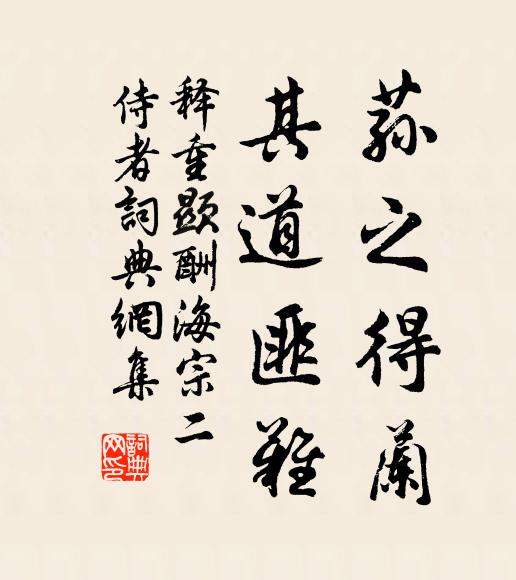 荪之得蘭
其道匪難
释重顯酬海宗二
侍者詞典網集
詞典网印